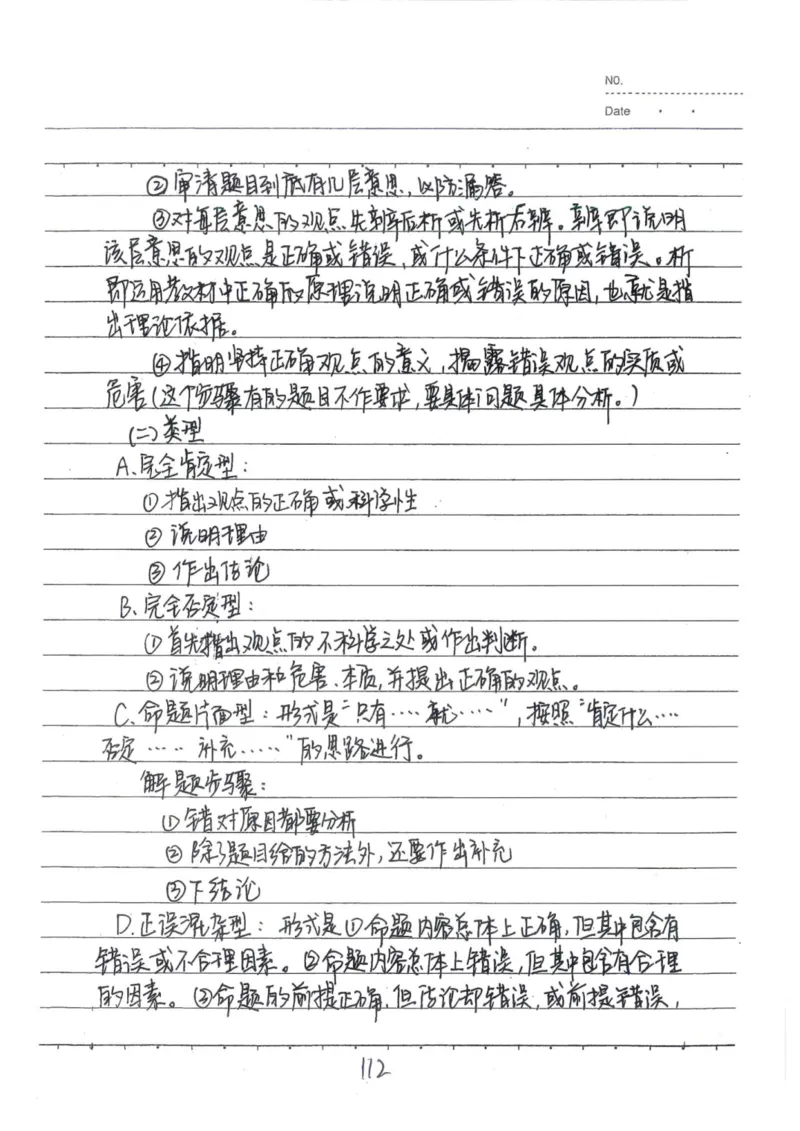 NO.
Date
②审清题目到底有几层意思，以防漏答。
③对每层意思的观点先辨后析或先析后辨。辨即说明
该层意思的观点是正确或错误，或什么条件下正确或错误。析
即运用教材中正确的原理说明正确或错误的原因，也就是指
出理论依据。
④指明坚持正确观点的意义，揭露错误观点的实质或
危害（这个步骤有的题目不作要求，要具体问题具体分析。）
（二）类型
A.完全肯定型：
①指出观点的正确或科学性
②说明理由
③作出结论
B.完全否定型：
①首先指出观点的不科学之处或作出判断。
②说明理由和危害、本质，并提出正确的观点。
C.命题片面型：形式是“只有……就……”，按照“肯定什么……
否定……补充……”的思路进行。
解题步骤：
①错对原因都要分析
②除了题目给的方法外，还要作出补充
③下结论
D.正误混杂型：形式是①命题内容总体上正确，但其中包含有
错误或不合理因素。②命题内容总体上错误，但其中包含有合理
的因素。③命题的前提正确，但结论却错误，或前提错误，
112